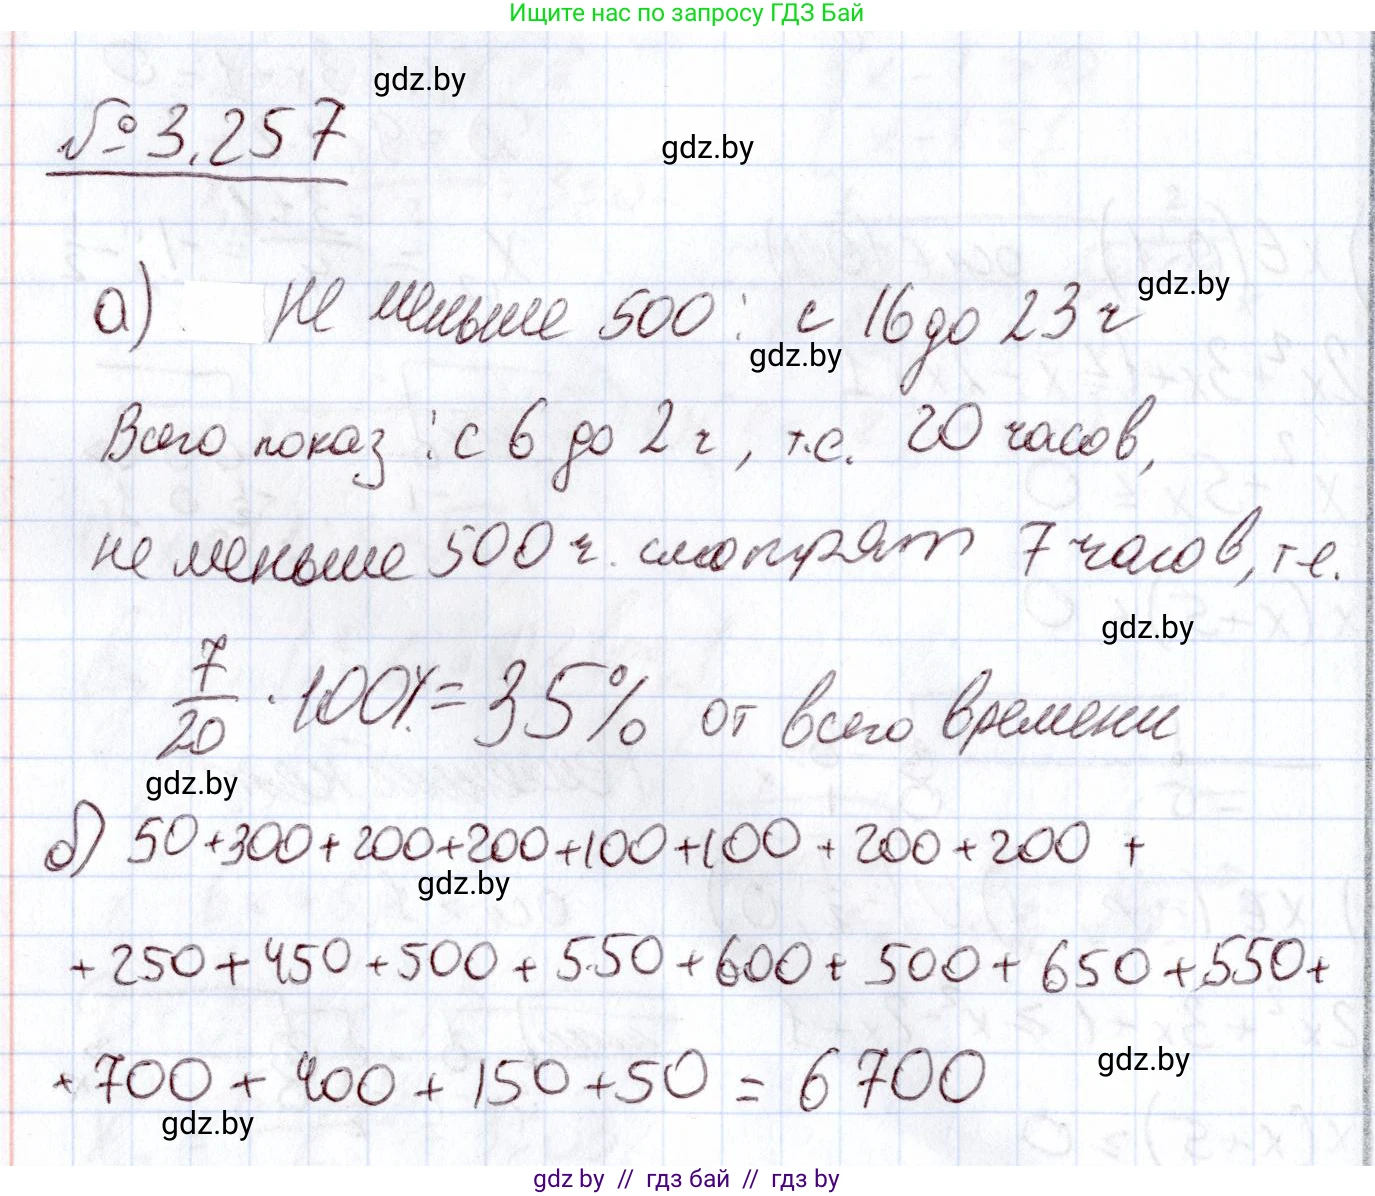 Ищите нас по запросу ГДЗ Бай
gdz.by
№ 3.257
gdz.by
а) Не меньше 500: с 16 до 23 ч
gdz.by
gdz.by
Всего показ: с 6 до 2 ч, т.е. 20 часов,
не меньше 500 ч. смотрят 7 часов, т.е.
gdz.by
7/20 · 100% = 35% от всего времени
gdz.by
б) 50+300+200+200+100+100+200+200+
gdz.by
+250+450+500+550+600+500+650+550+
+700+400+150+50=6700
gdz.by
gdz.by
gdz by // гдз бай // гдз by